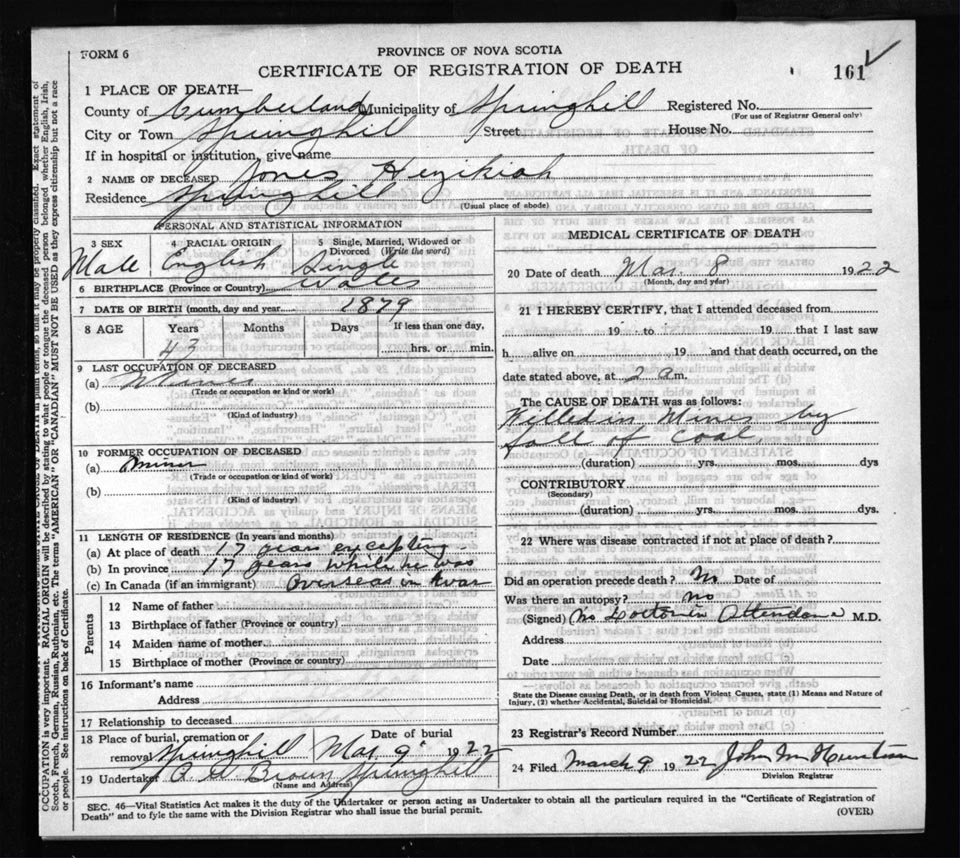 FORM 6
PROVINCE OF NOVA SCOTIA
CERTIFICATE OF REGISTRATION OF DEATH
161
1 PLACE OF DEATH—
County of Cumberland Municipality of Springhill Registered No.
(For use of Registrar General only)
City or Town Springhill Street House No.
If in hospital or institution, give name
2 NAME OF DECEASED Jones Hezikiah
Residence Springhill
(Usual place of abode)
PERSONAL AND STATISTICAL INFORMATION
3 SEX Male
4 RACIAL ORIGIN English
5 Single, Married, Widowed or Divorced (Write the word) Single
6 BIRTHPLACE (Province or Country) Wales
7 DATE OF BIRTH (month, day and year) 1879
8 AGE Years Months Days If less than one day,
43 hrs. or min.
9 LAST OCCUPATION OF DECEASED
(a) Miner
(Trade or occupation or kind or work)
(b)
(Kind of industry)
10 FORMER OCCUPATION OF DECEASED
(a) miner
(Trade or occupation or kind or work)
(b)
(Kind of industry)
11 LENGTH OF RESIDENCE (In years and months)
(a) At place of death 17 years excepting
(b) In province 17 years while he was
(c) In Canada (if an immigrant) Overseas in war
Parents
12 Name of father
13 Birthplace of father (Province or country)
14 Maiden name of mother
15 Birthplace of mother (Province or country)
16 Informant's name
Address
17 Relationship to deceased
18 Place of burial, cremation or removal Springhill
Date of burial Mar 9 1922
19 Undertaker Brown Springhill
(Name and Address)
MEDICAL CERTIFICATE OF DEATH
20 Date of death Mar. 8 1922
(Month, day and year)
21 I HEREBY CERTIFY, that I attended deceased from
19 to 19 that I last saw
h alive on 19 and that death occurred, on the
date stated above, at 2 a m.
The CAUSE OF DEATH was as follows:
Killed in Mines by
fall of coal.
(duration) yrs. mos. dys
CONTRIBUTORY
(Secondary)
(duration) yrs. mos. dys.
22 Where was disease contracted if not at place of death?
Did an operation precede death? No Date of
Was there an autopsy? no
(Signed) No Doctor in Attendance M.D.
Address
Date
State the Disease causing Death, or in death from Violent Causes, state (1) Means and Nature of
Injury, (2) whether Accidental, Suicidal or Homicidal.
23 Registrar's Record Number
24 Filed March 9 1922 John M
Division Registrar
SEC. 46—Vital Statistics Act makes it the duty of the Undertaker or person acting as Undertaker to obtain all the particulars required in the "Certificate of Registration of
Death" and to fyle the same with the Division Registrar who shall issue the burial permit.
(OVER)
OCCUPATION is very important. RACIAL ORIGIN will be described by stating to what people or tongue the deceased person belonged whether English, Irish,
Scotch, French, German, Russian, Ruthenian, etc. The terms "AMERICAN" OR "CANADIAN" MUST NOT BE USED as they express citizenship but not a race
or people. See instructions on back of Certificate.